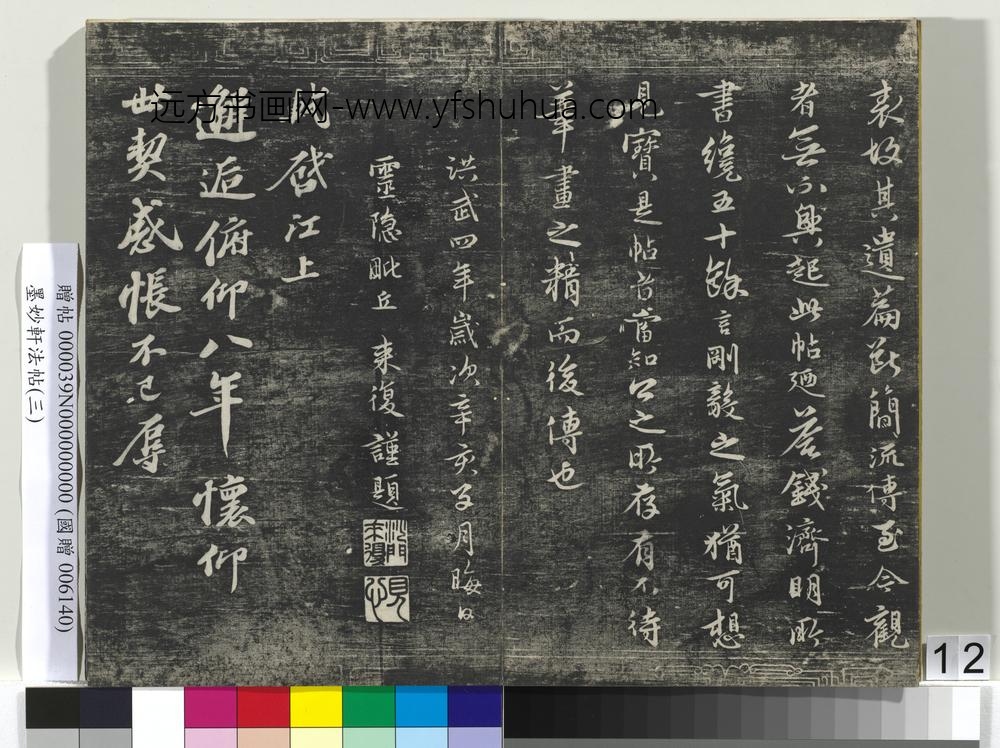 表故其遺篇斷簡流傳至今觀
者無不興起此帖廼荅錢濟明所
書纔五十餘言剛毅之氣猶可想
見寶是帖者當知公之所存有不待
筆畫之精而後傳也
洪武四年歲次辛亥子月晦日
靈隱毗丘來復謹題
見心
啓江上
邂逅俯仰八年懷仰
世契感悵不已辱
远方书画网-www.yfshuhua.com
贈帖 000039N000000000 (國贈 006140)
墨妙軒法帖(三)
12